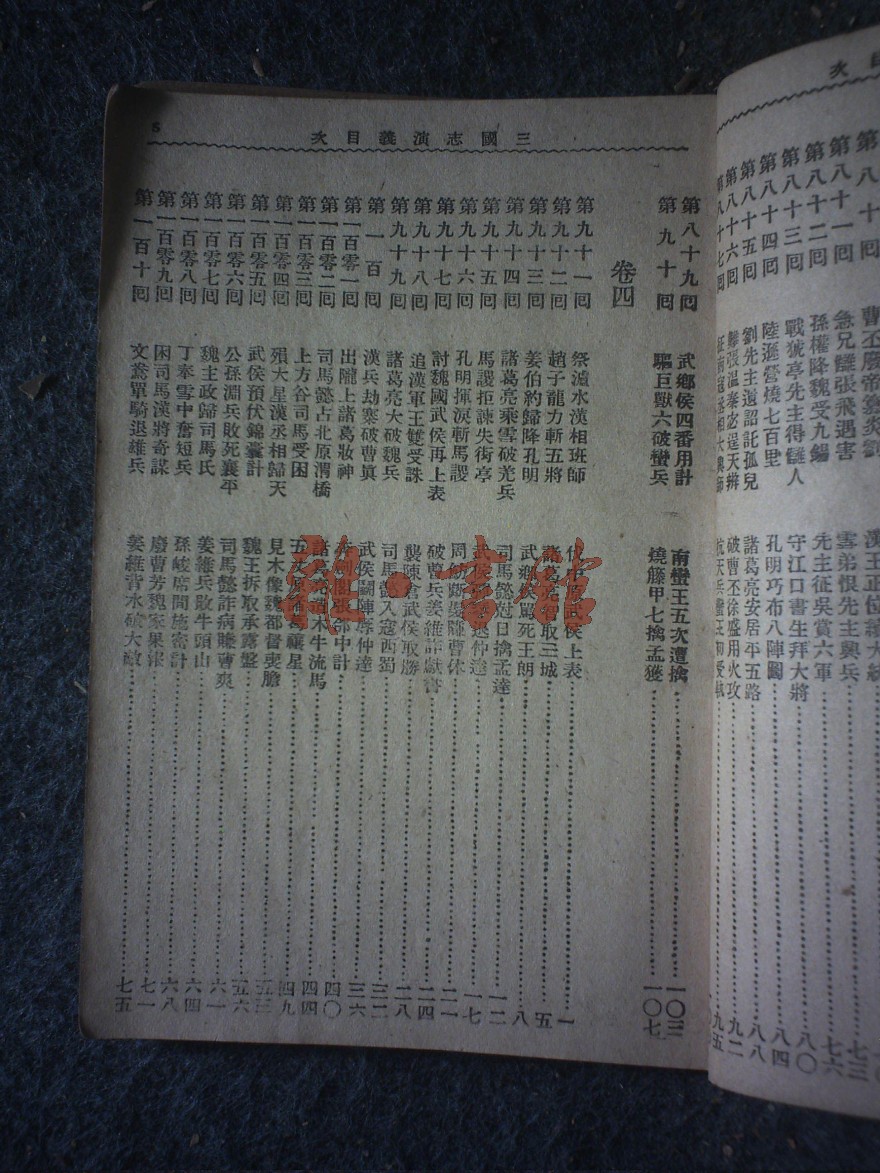 目次
第八十囘 曹丕廢帝篡炎劉 漢王正位續大統
第八十一囘 急兄讎張飛遇害 雪弟恨先主興兵 七三
第八十二囘 孫權降魏受九錫 先主征吳賞六軍 七六
第八十三囘 戰猇亭先主得讎人 守江口書生拜大將 八〇
第八十四囘 陸遜營燒七百里 孔明巧布八陣圖 八四
第八十五囘 劉先主遺詔託孤兒 諸葛亮安居平五路 八八
第八十六囘 難張溫秦宓逞天辯 破曹丕徐盛用火攻 九二
第八十七囘 征南寇丞相大興師 抗天兵蠻王初受執 九五
三國志演義目次
5
第八十九囘 武鄉侯四番用計 南蠻王五次遭擒 一〇三
第九十囘 驅巨獸六破蠻兵 燒藤甲七擒孟獲 一〇七
卷四
第九十一囘 祭瀘水漢相班師 伐中原武侯上表 一
第九十二囘 趙子龍力斬五將 諸葛亮智取三城 五
第九十三囘 姜伯約歸降孔明 武鄉侯罵死王朗 八
第九十四囘 諸葛亮乘雪破羌兵 司馬懿尅日擒孟達 一二
第九十五囘 馬謖拒諫失街亭 武侯彈琴退仲達 一七
第九十六囘 孔明揮淚斬馬謖 周魴斷髮賺曹休 二一
第九十七囘 討魏國武侯再上表 破曹兵姜維詐獻書 二四
第九十八囘 追漢軍王雙受誅 襲陳倉武侯取勝 二八
第九十九囘 諸葛亮大破魏兵 司馬懿入寇西蜀 三二
第一百囘 漢兵劫寨破曹眞 武侯鬪陣辱仲達 三六
第一百零一囘 出隴上諸葛妝神 奔劍閣張郃中計 四〇
第一百零二囘 司馬懿占北原渭橋 諸葛亮造木牛流馬 四四
第一百零三囘 上方谷司馬受困 五丈原諸葛禳星 四九
第一百零四囘 殞大星漢丞相歸天 見木像魏都督喪膽 五三
第一百零五囘 武侯預伏錦囊計 魏王拆取承露盤 五六
第一百零六囘 公孫淵兵敗死襄平 司馬懿詐病賺曹爽 六一
第一百零七囘 魏主政歸司馬氏 姜維兵敗牛頭山 六四
第一百零八囘 丁奉雪中奮短兵 孫峻席間施密計 六八
第一百零九囘 困司馬漢將奇謀 廢曹芳魏家果報 七一
第一百十囘 文鴦單騎退雄兵 姜維背水破大敵 七五